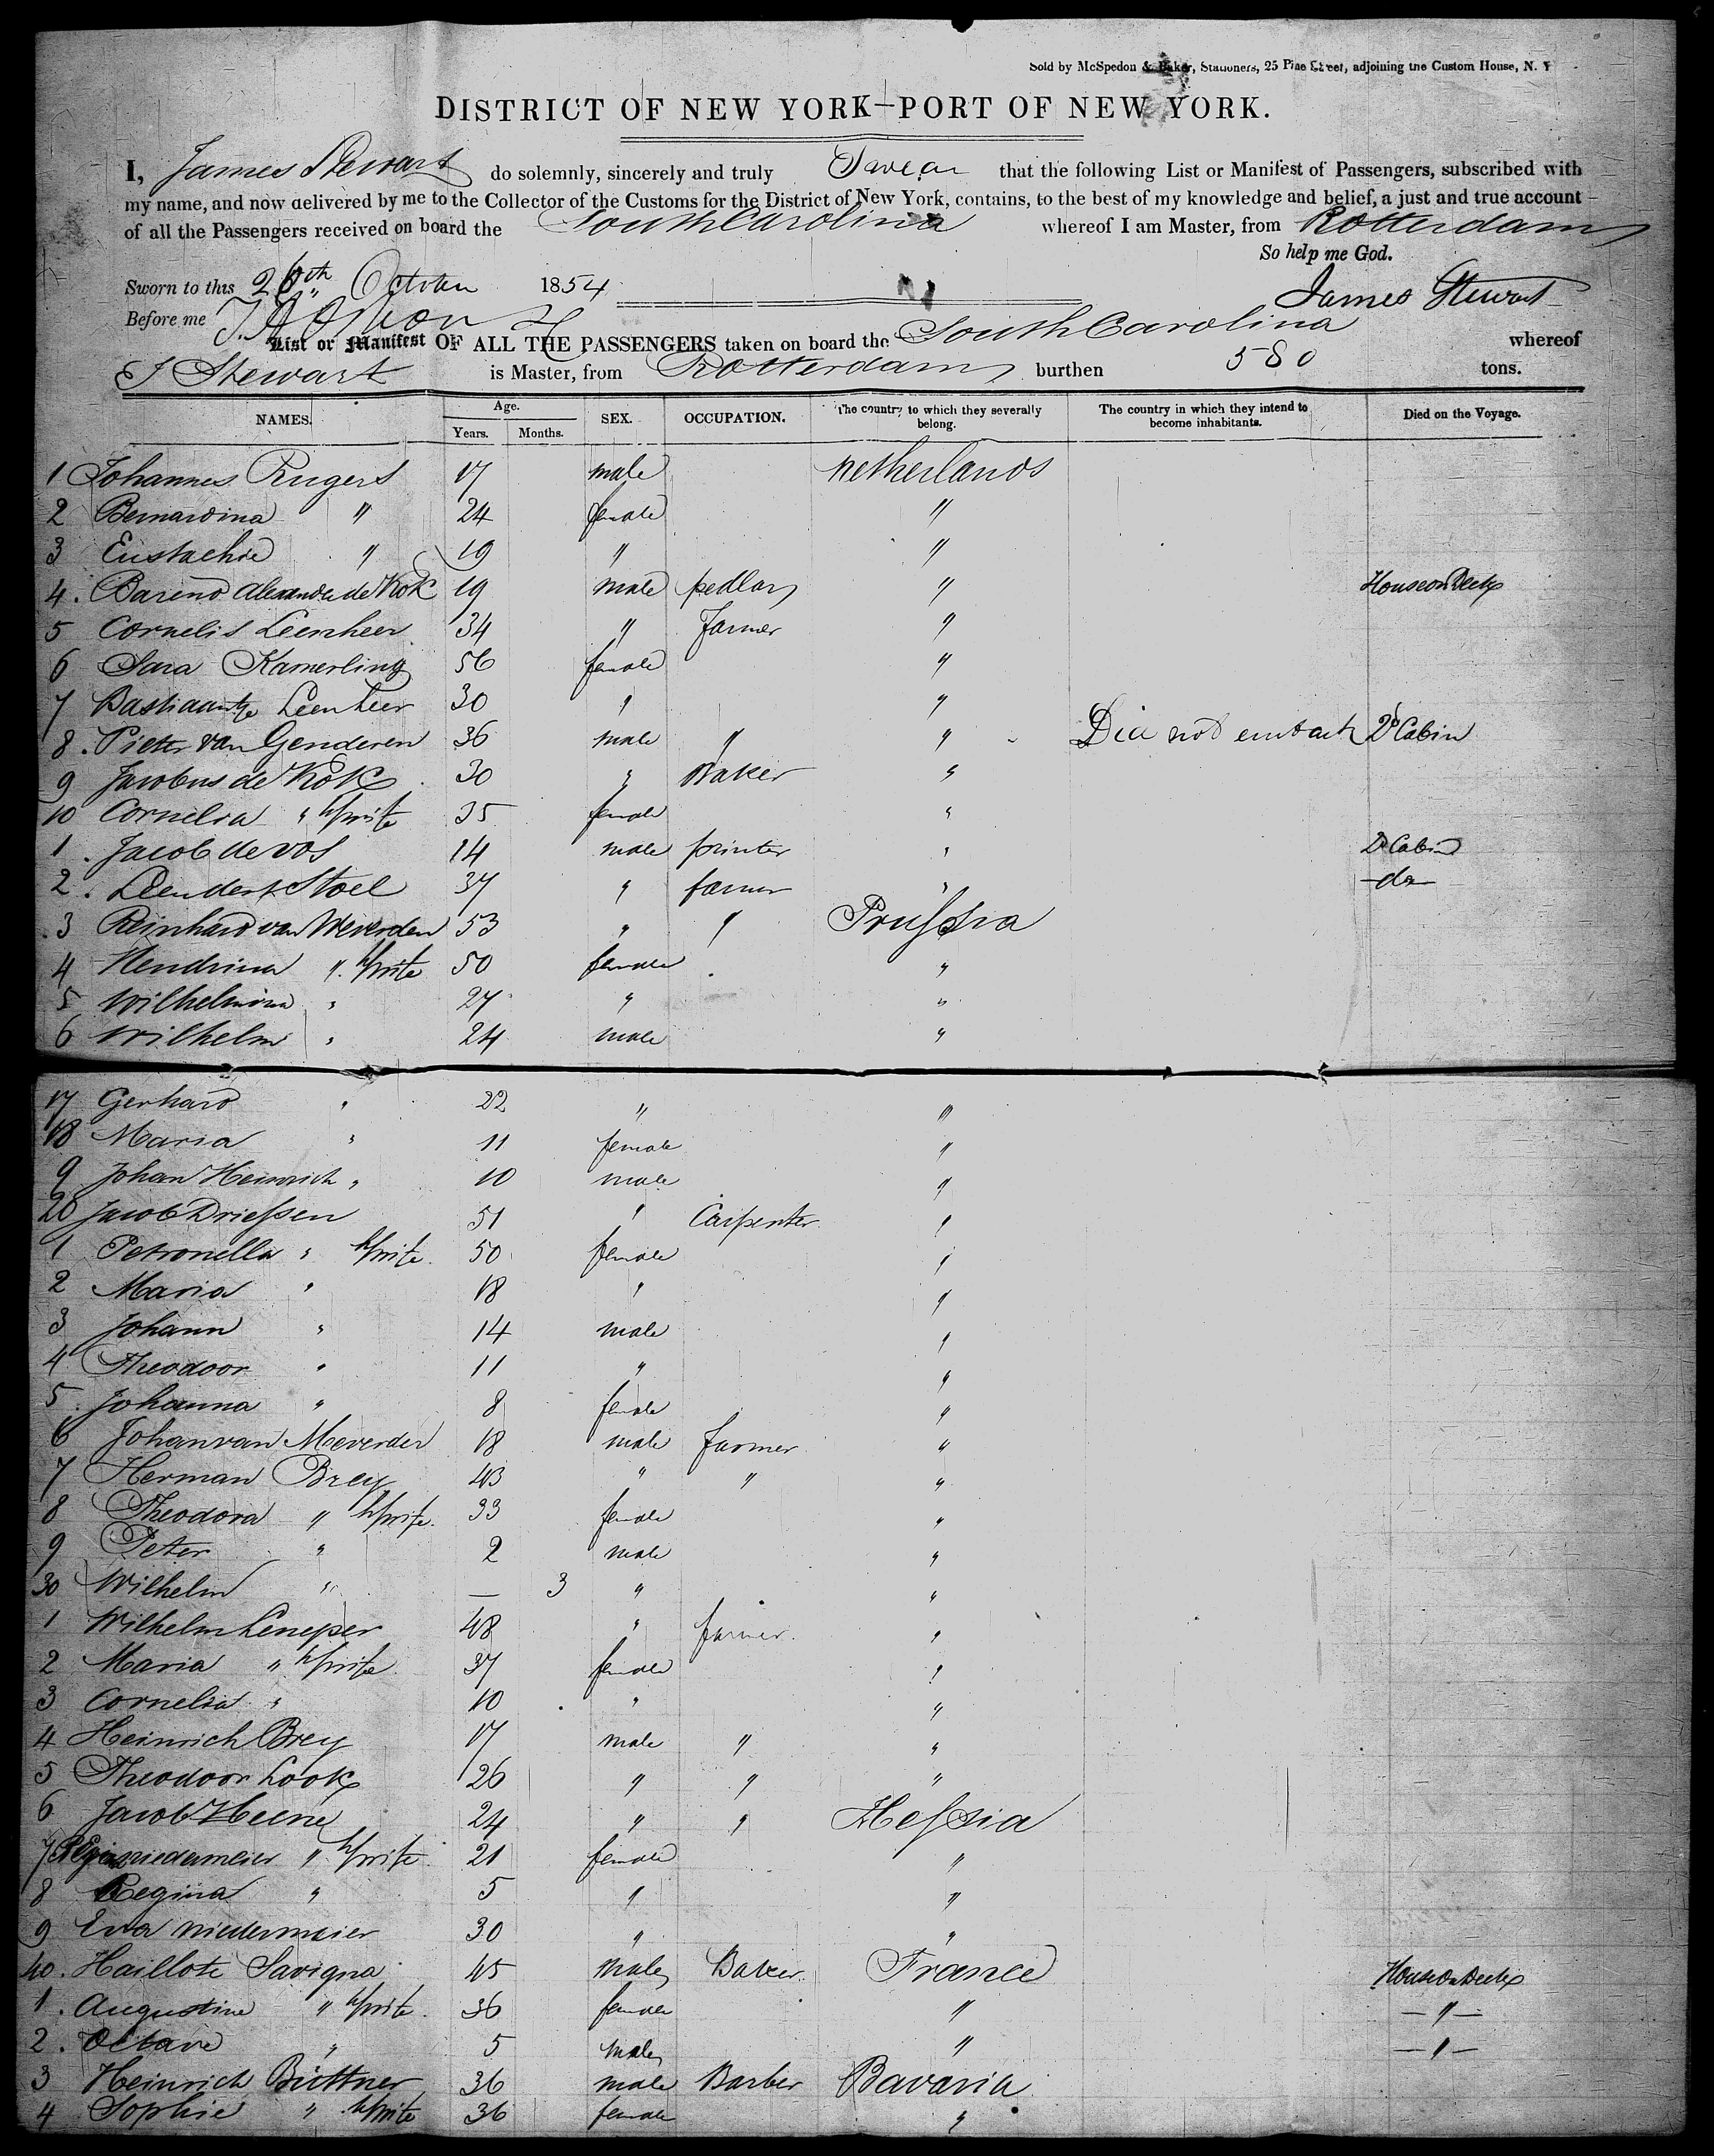 Sold by McSpedon & Baker, Stationers, 25 Pine Street, adjoining the Custom House, N. Y
DISTRICT OF NEW YORK—PORT OF NEW YORK.
I, James Stewart do solemnly, sincerely and truly Swear that the following List or Manifest of Passengers, subscribed with
my name, and now delivered by me to the Collector of the Customs for the District of New York, contains, to the best of my knowledge and belief, a just and true account
of all the Passengers received on board the South Carolina whereof I am Master, from Rotterdam
So help me God.
Sworn to this 26th October 1854
James Stewart
Before me
List or Manifest OF ALL THE PASSENGERS taken on board the South Carolina whereof
J Stewart is Master, from Rotterdam burthen 580 tons.
NAMES. Age. Years. Months. SEX. OCCUPATION. The country to which they severally belong. The country in which they intend to become inhabitants. Died on the Voyage.
1 Johannes Rugers 17 male Netherlands
2 Bernardina " 24 female "
3 Eustachie " 19 " "
4. Barend Alexander de Kok 19 male pedlar " House on Deck
5 Cornelis Leenheer 34 " Farmer "
6 Sara Kamerling 56 female "
7 Bastiaantje Leenheer 30 " "
8. Pieter van Genderen 36 male " " Did not embark 2d Cabin
9 Jacobus de Kok 30 " Baker "
10 Cornelia " h/wife 35 female "
1. Jacob de Vos 14 male printer " 2d Cabin
2. Leendert Stoel 37 " farmer " do
3 Reinhard van Weverden 53 " " Prussia
4 Hendrina " h/wife 50 female "
5 Wilhelmina " 27 " "
6 Wilhelm " 24 male "
17 Gerhard " 22 " "
18 Maria " 11 female "
9 Johan Heinrich " 10 male "
20 Jacob Driessen 51 " Carpenter "
1 Petronella " h/wife 50 female "
2 Maria " 18 " "
3 Johann " 14 male "
4 Theodoor " 11 " "
5. Johanna " 8 female "
6 Johan van Meverden 18 male farmer "
7 Herman Brey 43 " " "
8 Theodora " h/wife 33 female "
9 Peter " 2 male "
30 Wilhelm " — 3 " "
1 Wilhelm 48 " farmer "
2 Maria " h/wife 37 female "
3 Cornelia " 10 " "
4 Heinrich Brey 17 male " "
5 Theodoor Look 26 " " "
6 Jacob Heene 24 " " Hessia
7 niedermeier " h/wife 21 female "
8 Regina " 5 " "
9 Eva niedermeier 30 " "
40. Haillote Savigna 45 male Baker France House on Deck
1. Augustine " h/wife 36 female " — " —
2. Octave " 5 male " — " —
3 Heinrich Büttner 36 male Barber Bavaria
4 Sophie " h/wife 36 female "